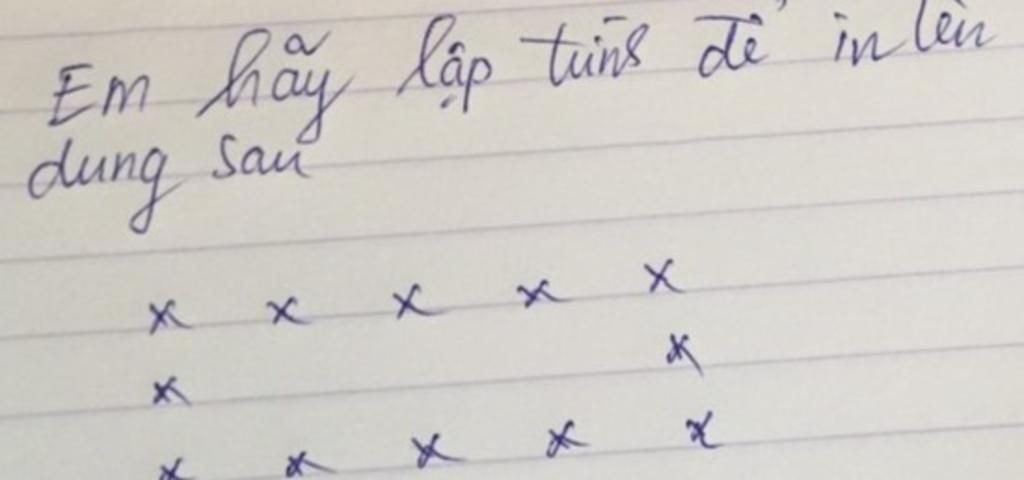 Em hãy lập tưins để in lên
dung sau
x x x x x
x x
x x x x x